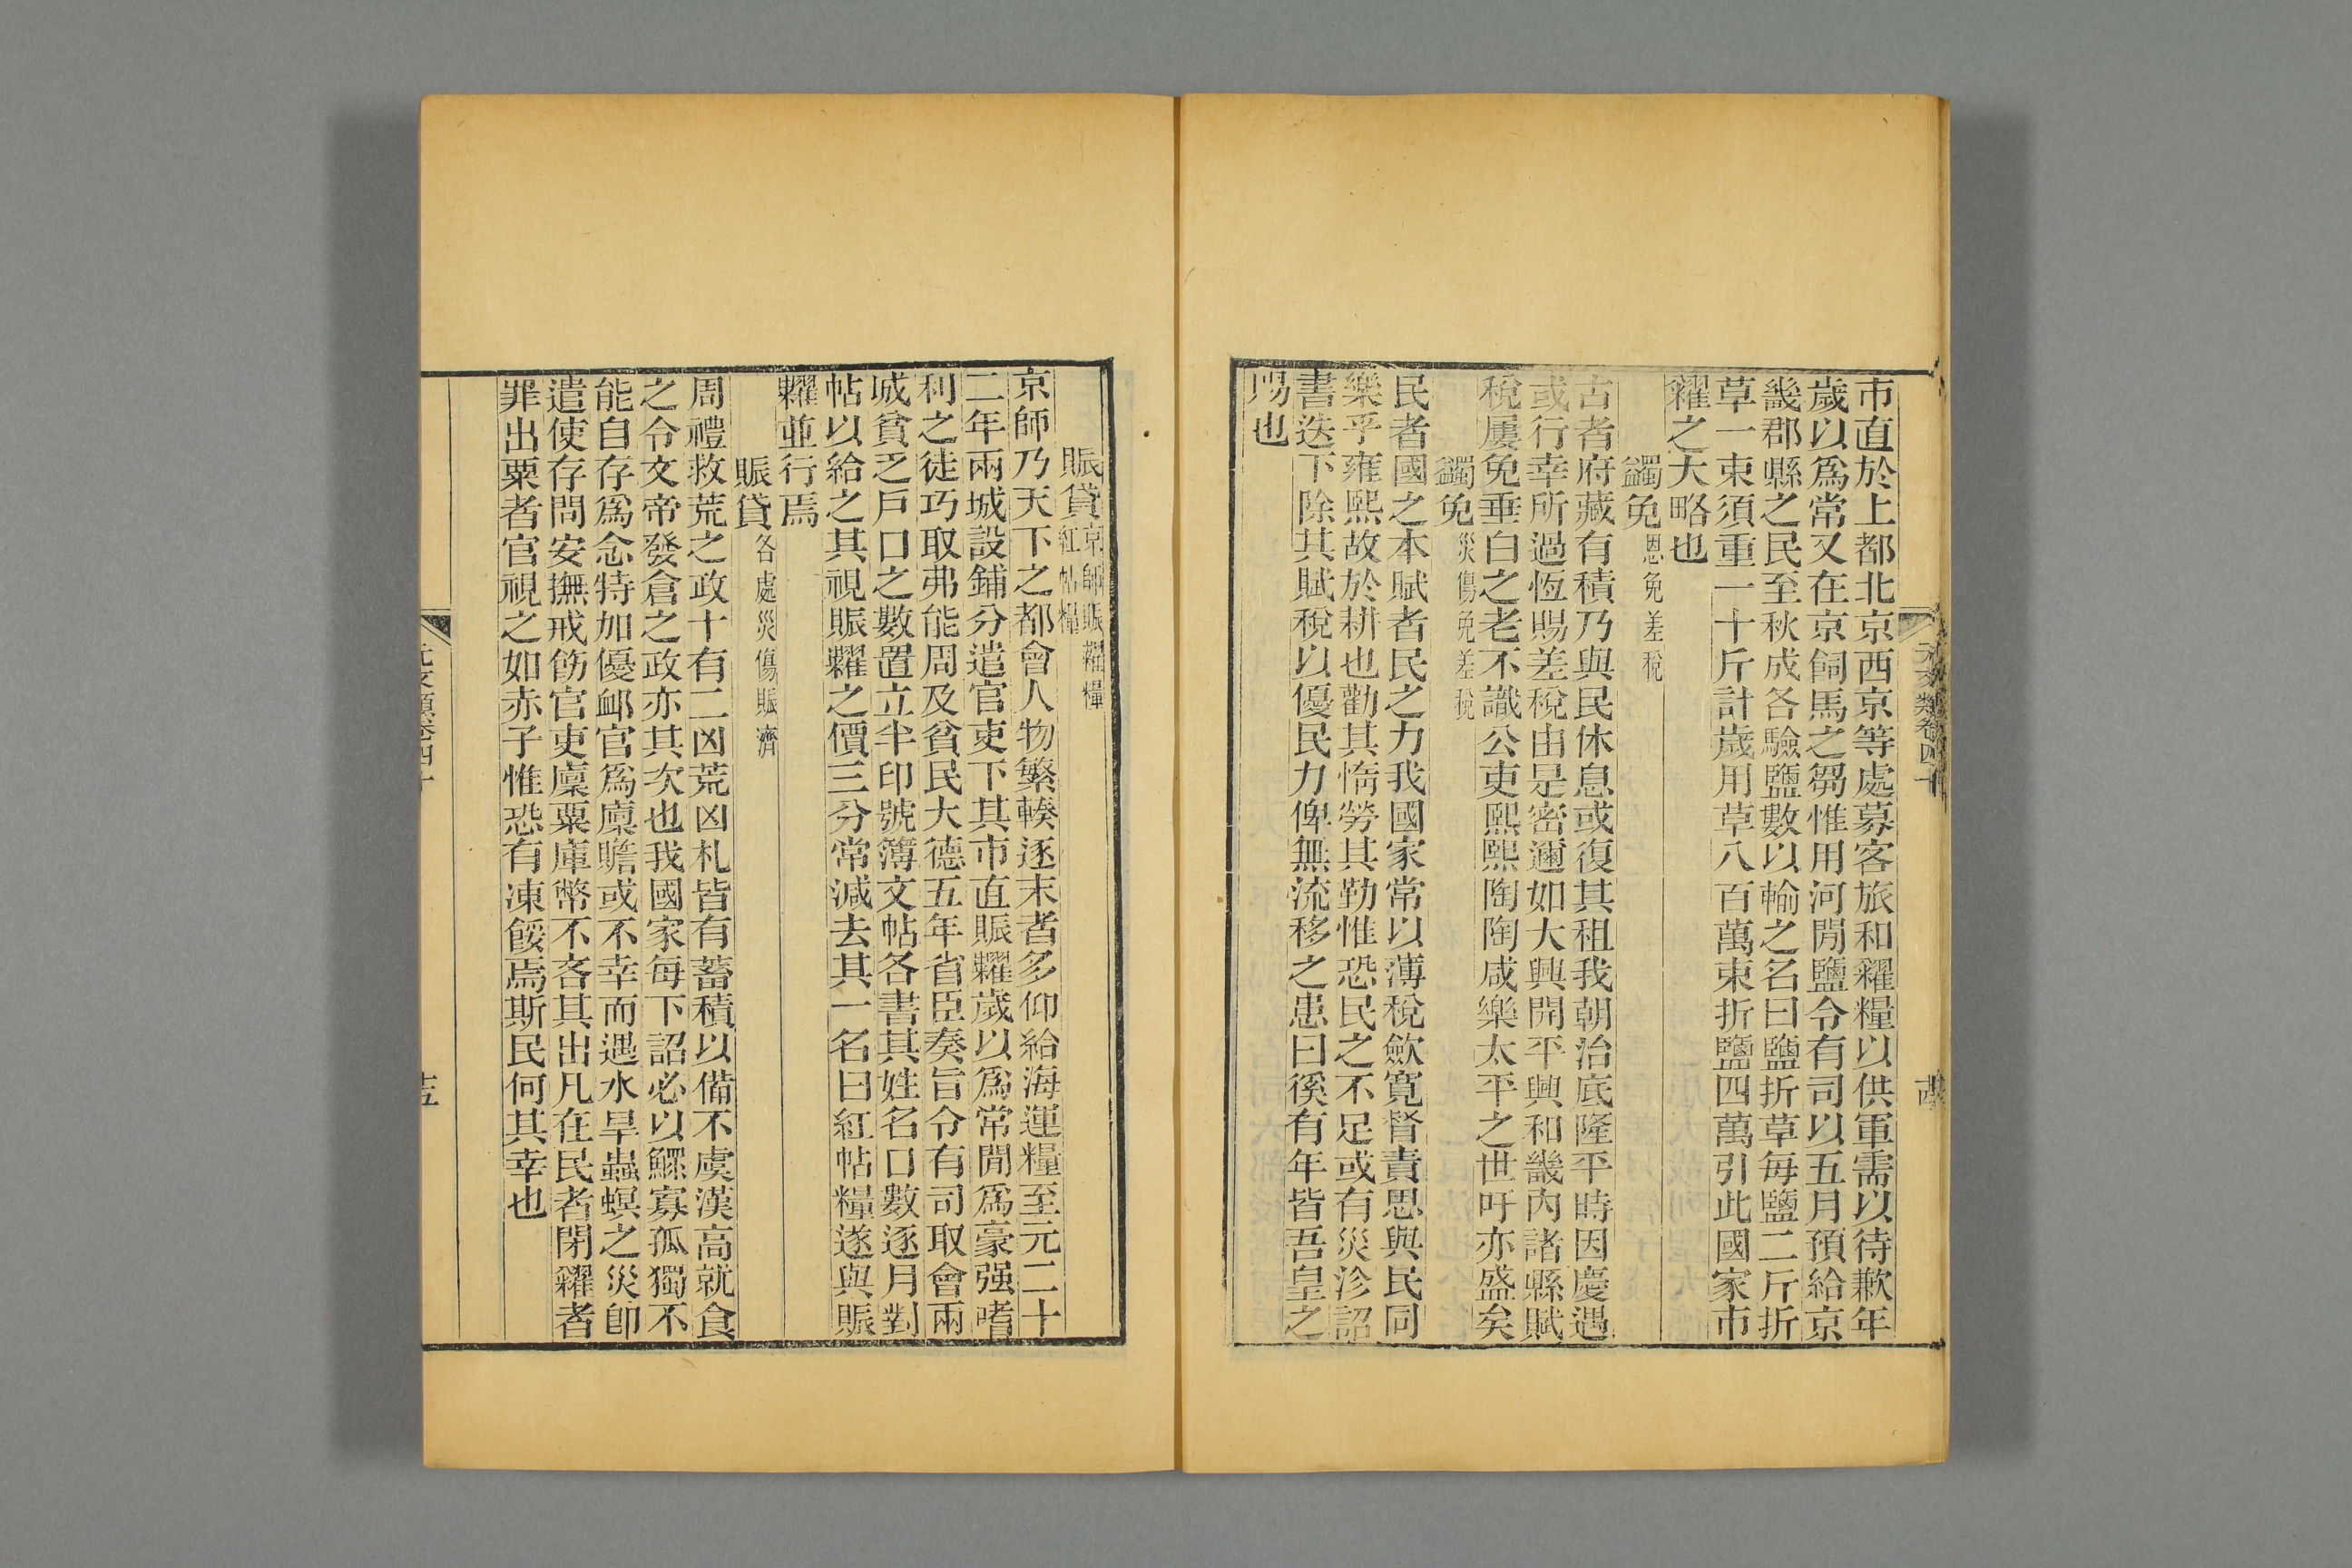 市直於上都北京西京等處募客旅和糴糧以供軍需以待歉年
歲以爲常又在京飼馬之芻惟用河閒鹽令有司以五月預給京
畿郡縣之民至秋成各驗鹽數以輸之名曰鹽折草每鹽二斤折
草一束須重一十斤計歲用草八百萬束折鹽四萬引此國家市
糴之大略也
蠲免恩免差稅
古者府藏有積乃與民休息或復其租我朝治底隆平時因慶遇
或行幸所過恆賜差稅由是密邇如大興開平興和畿內諸縣賦
稅屢免垂白之老不識公吏熙熙陶陶咸樂太平之世吁亦盛矣
蠲免災傷免差稅
民者國之本賦者民之力我國家常以薄稅歛寬督責思與民同
樂乎雍熙故於耕也勸其惰勞其勤惟恐民之不足或有災沴詔
書迭下除其賦稅以優民力俾無流移之患曰徯有年皆吾皇之
賜也
賑貸京師賑糶糧
紅帖糧
京師乃天下之都會人物繁輳逐末者多仰給海運糧至元二十
二年兩城設鋪分遣官吏下其市直賑糶歲以爲常閒爲豪强嗜
利之徒巧取弗能周及貧民大德五年省臣奏旨令有司取會兩
城貧乏戶口之數置立半印號簿文帖各書其姓名口數逐月對
帖以給之其視賑糶之價三分常減去其一名曰紅帖糧遂與賑
糶並行焉
賑貸各處災傷賑濟
周禮救荒之政十有二凶荒凶札皆有蓄積以備不虞漢高就食
之令文帝發倉之政亦其次也我國家每下詔必以鰥寡孤獨不
能自存爲念特加優卹官爲廩贍或不幸而遇水旱蟲螟之災卽
遣使存問安撫戒飭官吏廩粟庫幣不吝其出凡在民者閉糴者
罪出粟者官視之如赤子惟恐有凍餒焉斯民何其幸也